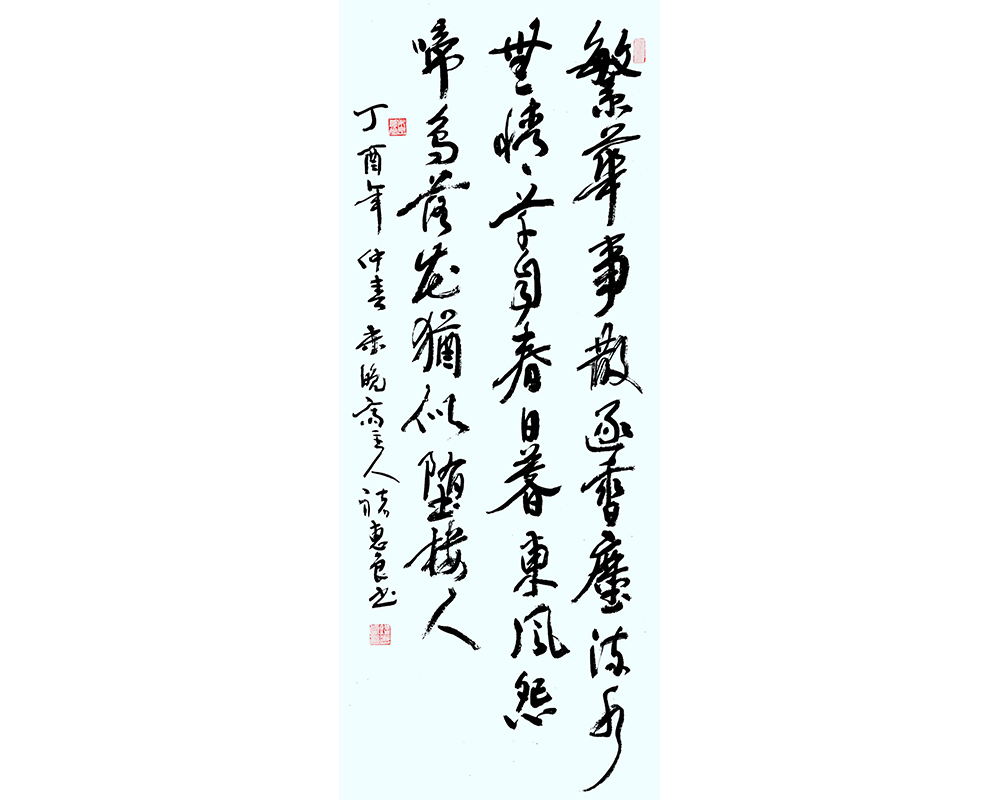 繁華事散逐香塵流水
無情草自春日暮東風怨
啼鳥落花猶似墮樓人
丁酉年仲春晚斋主人褚惠良书